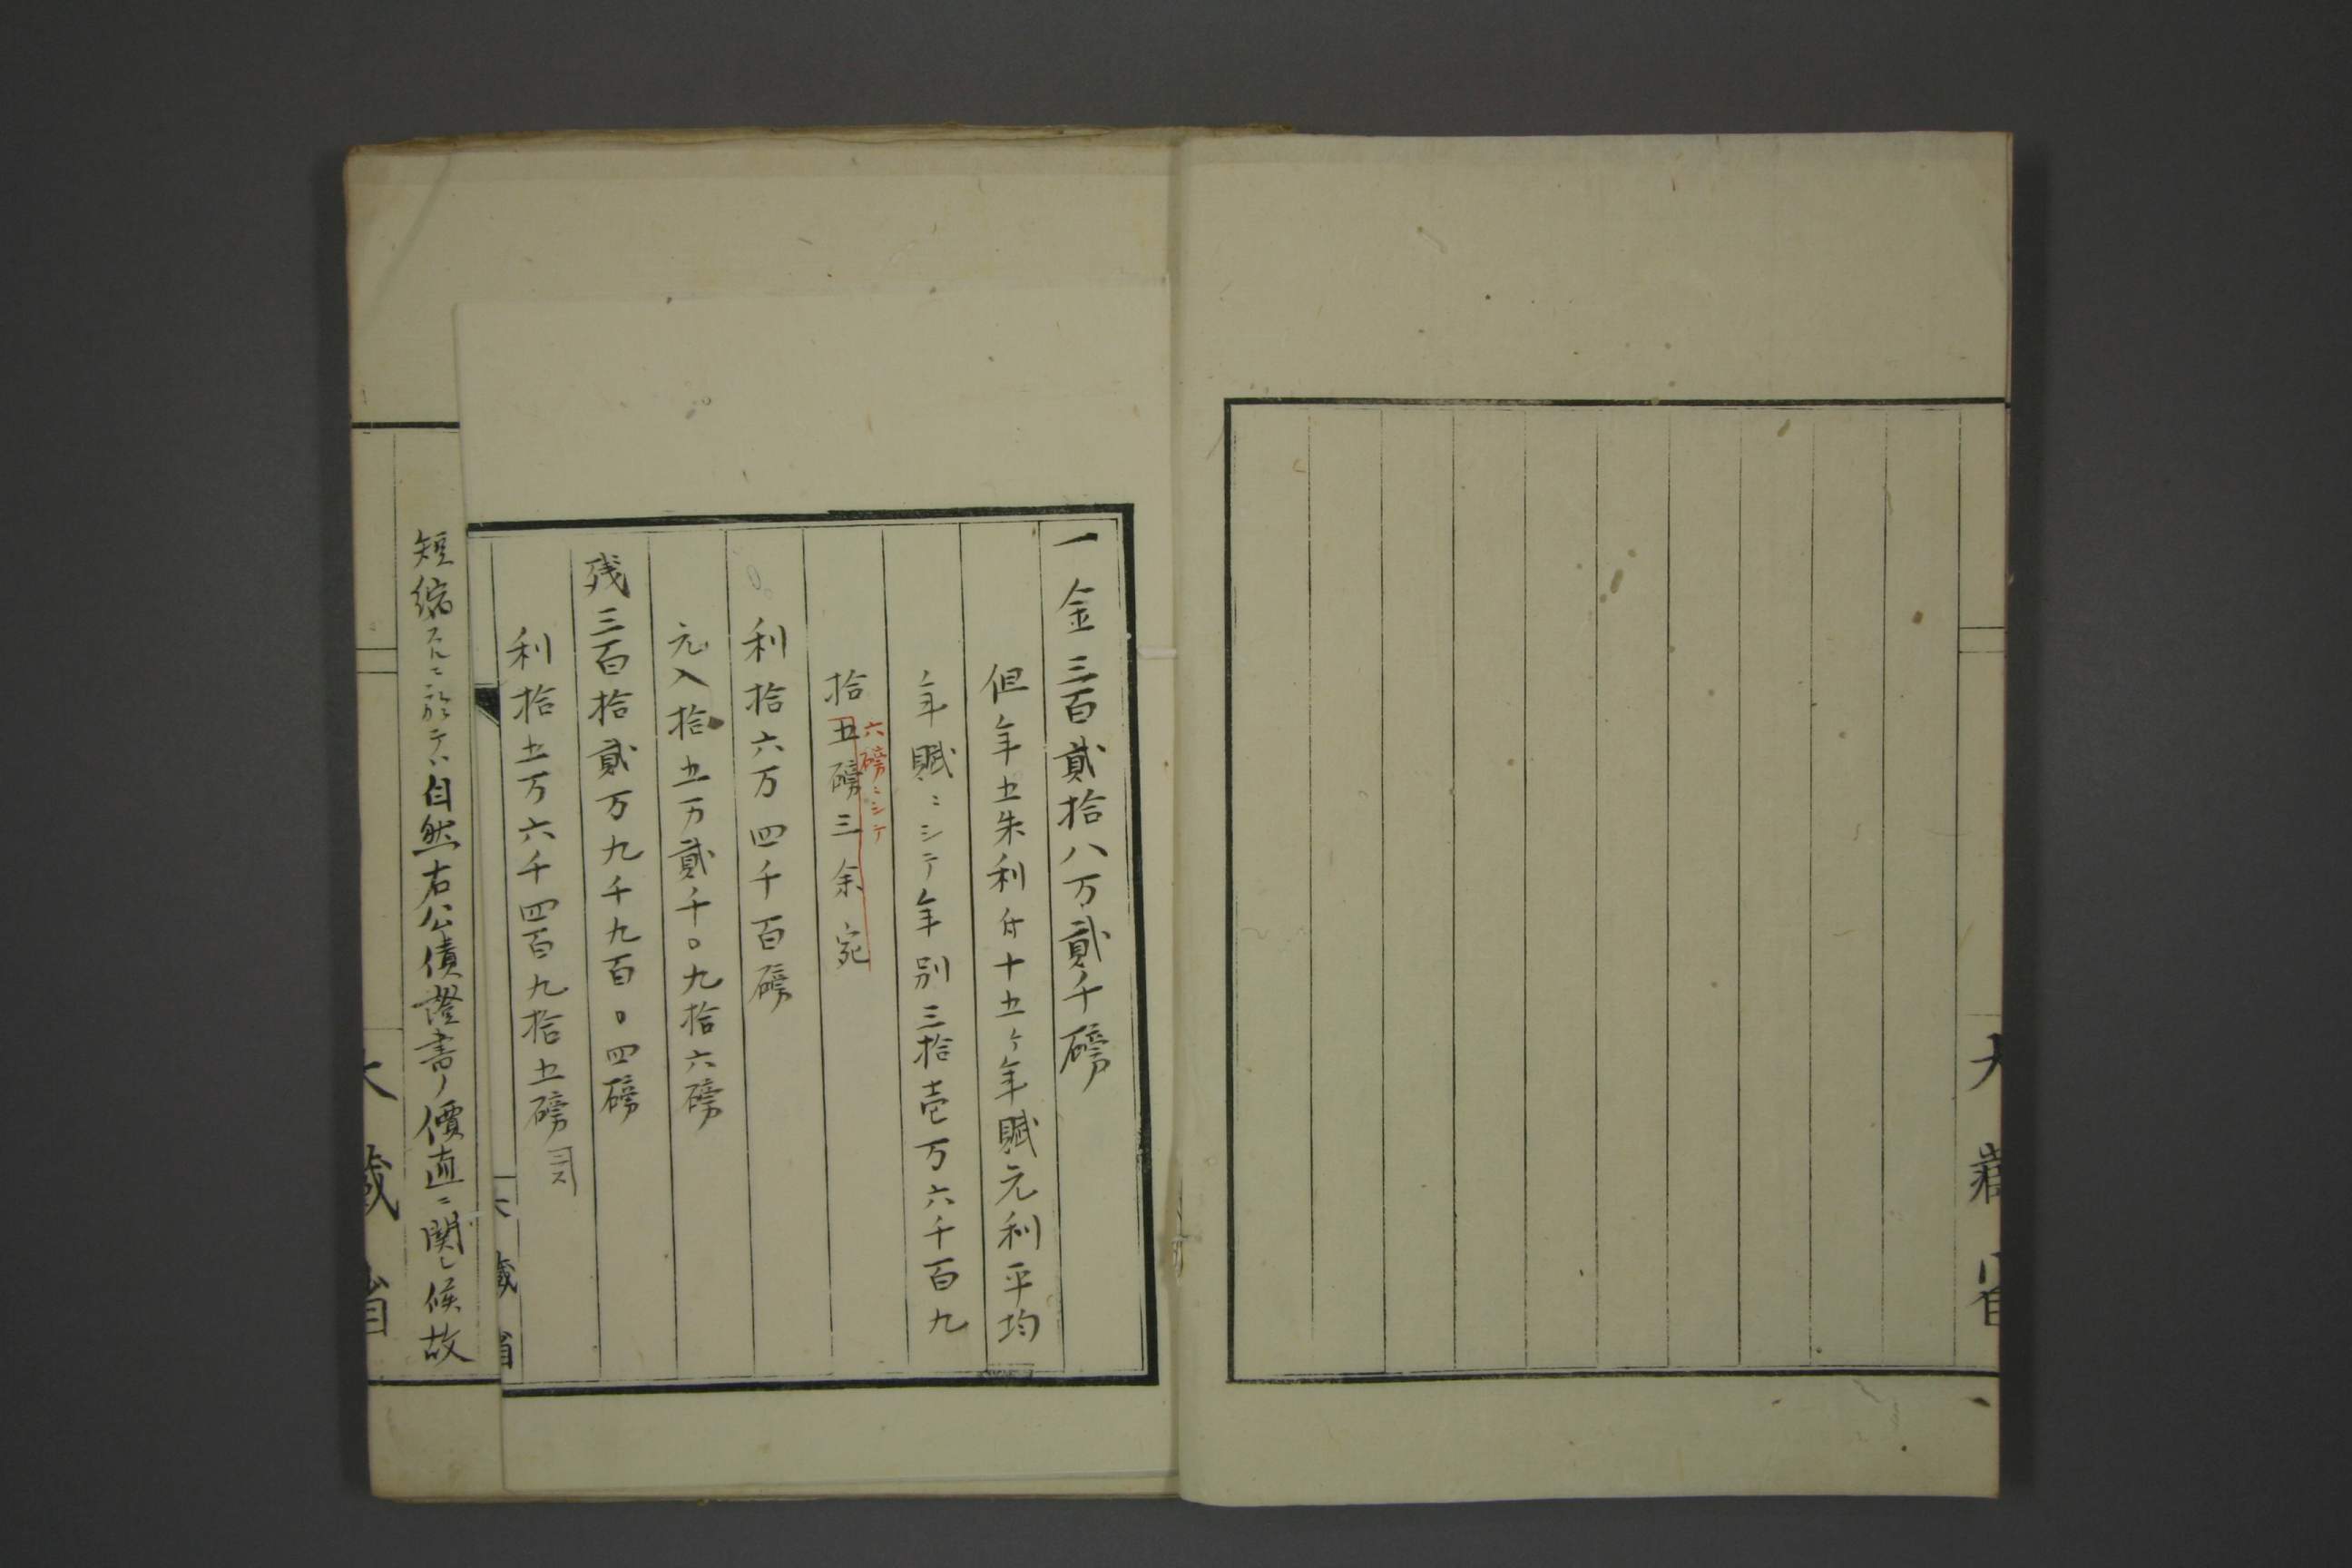 大藏省
一金三百貳拾八万貳千磅
但年五朱利付十五ヶ年賦元利平均
年賦ニシテ年別三拾壱万六千百九
六磅ニシテ
拾五磅三余宛
利拾六万四千百磅
元入拾五万貳千〇九拾六磅
残三百拾貳万九千九百〇四磅
利拾五万六千四百九拾五磅
大藏省
短縮スルニ於テハ自然右公債證書ノ價直ニ関シ候故
大藏省